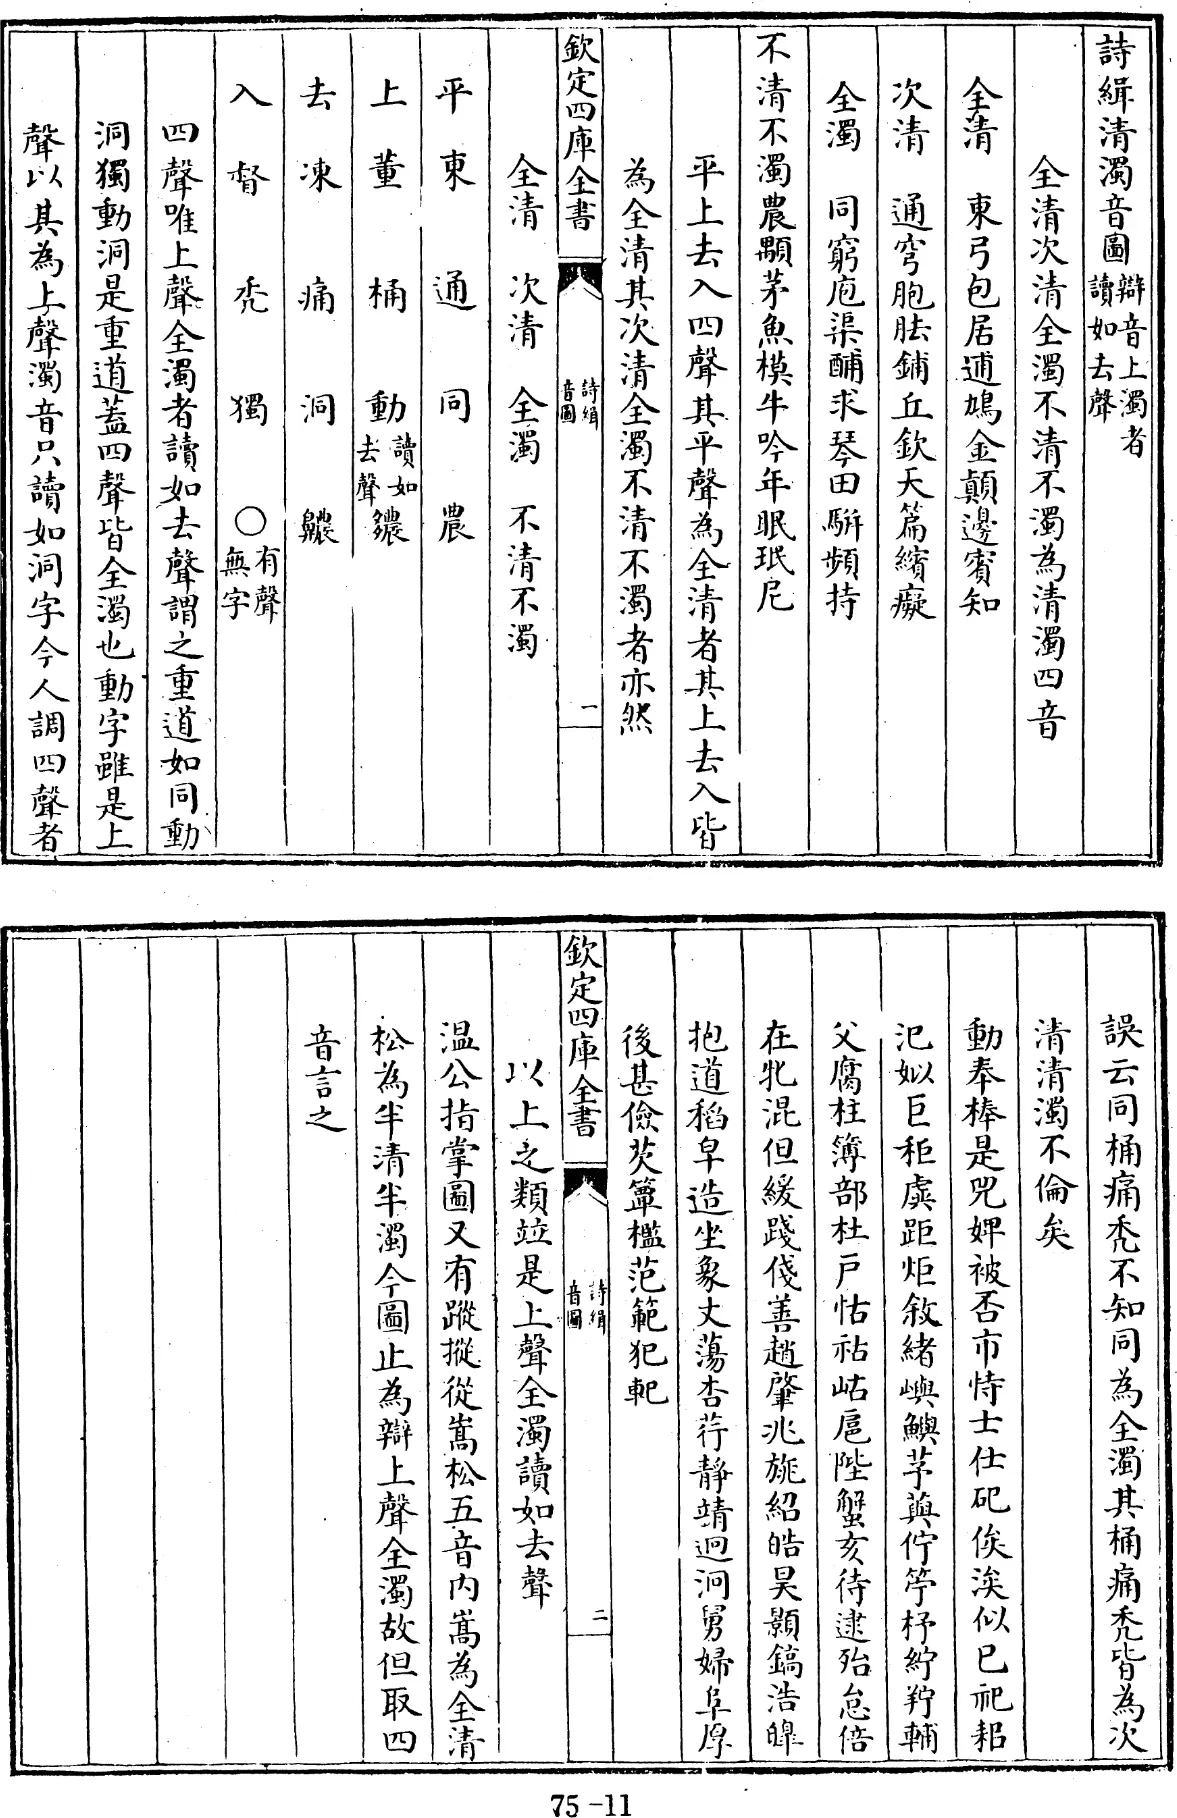 詩緝清濁音圖辯音上濁者讀如去聲
全清次清全濁不清不濁為清濁四音
全清　東弓包居逋鳩金顛邊賓知
次清　通穹胞胠鋪丘欽天篇繽癡
全濁　同窮庖渠酺求琴田駢頻持
不清不濁農顒茅魚模牛吟年眠珉尼
平上去入四聲其平聲為全清者其上去入皆
為全清其次清全濁不清不濁者亦然
欽定四庫全書　詩緝音圖　一
全清　次清　全濁　不清不濁
平　東　通　同　農
上　董　桶　動讀如去聲　癑
去　凍　痛　洞　齈
入　督　禿　獨　〇有聲無字
四聲唯上聲全濁者讀如去聲謂之重道如同動
洞獨動洞是重道蓋四聲皆全濁也動字雖是上
聲以其為上聲濁音只讀如洞字今人調四聲者
誤云同桶痛禿不知同為全濁其桶痛禿皆為次
清清濁不倫矣
動奉棒是兕婢被否市恃士仕戺俟涘似巳祀耜
汜姒巨秬虡距炬敘緒嶼鱮芧藇佇竚杼紵羜輔
父腐柱簿部杜戸怙祜岵扈陛蟹亥待逮殆怠倍
在牝混但緩踐俴善趙肇兆旐紹皓昊顥鎬浩皞
抱道稻皁造坐象丈蕩杏荇靜靖迥泂舅婦阜厚
後甚儉芡簟檻范範犯軓
欽定四庫全書　詩緝音圖　二
以上之類竝是上聲全濁讀如去聲
温公指掌圖又有蹤摐從嵩松五音内嵩為全清
松為半清半濁今圖止為辯上聲全濁故但取四
音言之
75-11